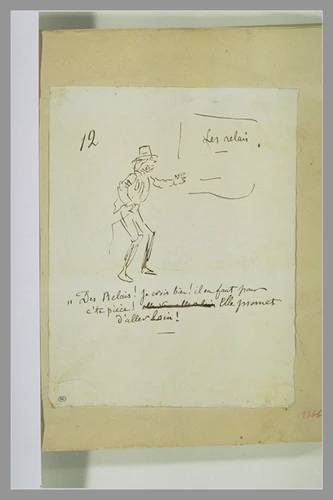 12
Les relais.
"Des Relais! Je crois bien! il en faut pour
c'te pièce! Elle promet
d'aller Loin!